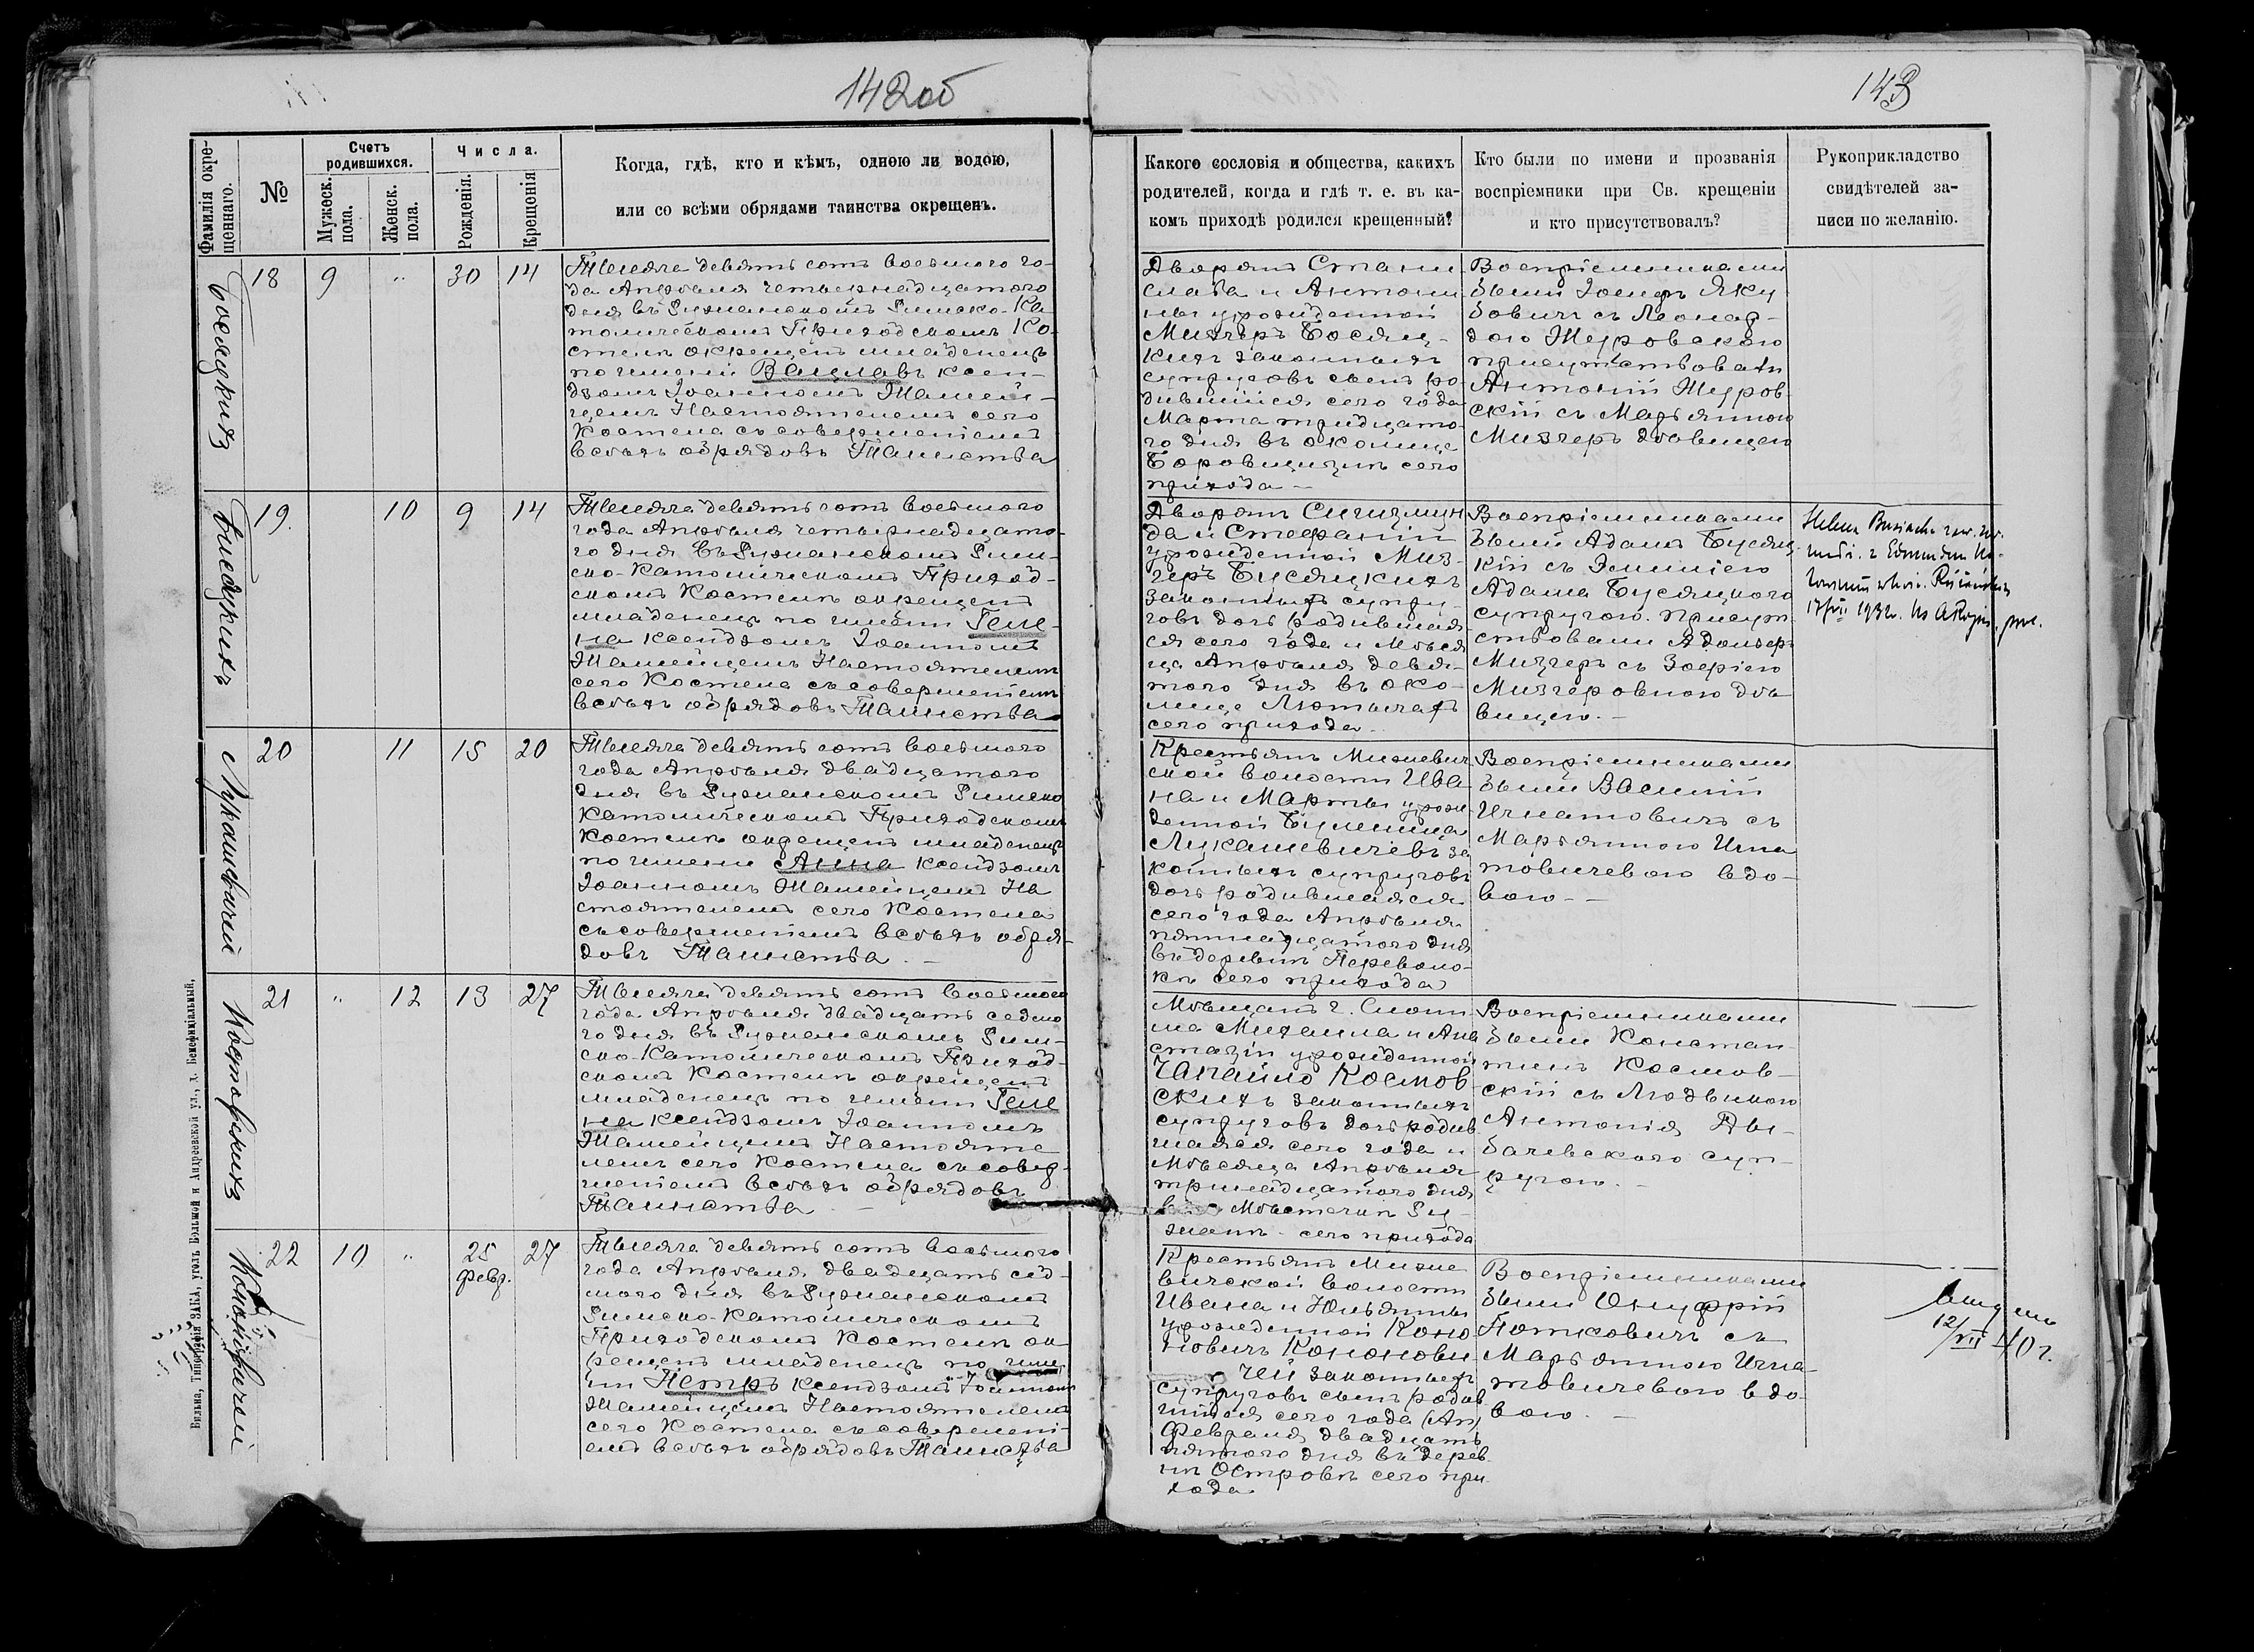 142об
143
Фамилія окре-
щеннаго.
№
Счетъ
родившихся.
Мужеск.
пола.
Женск.
пола.
Числа.
Рожденія.
Крещенія
Когда, гдѣ, кто и кѣмъ, одною ли водою,
или со всѣми обрядами таинства окрещенъ.
Какого сословія и общества, какихъ
родителей, когда и гдѣ т. е. въ ка-
комъ приходѣ родился крещенный?
Кто были по имени и прозванія
воспріемники при Св. крещеніи
и кто присутствовалъ?
Рукоприкладство
свидѣтелей за-
писи по желанію.
Босяцкихъ
18 9 " 30 14
Тысяча девятьсотъ восьмого го-
да Апрѣля четырнадцатого
дня въ Ружанскомъ Римско-Ка
толическомъ Приходскомъ Ко-
стелѣ окрещенъ младенецъ
по имени Вацлавъ Ксен-
дзомъ Іоанномъ
Настоятелемъ сего
Костела съ совершеніемъ
всѣхъ обрядовъ Таинства
Дворянъ Стани
слава и Антони
ны урожденной
Мизгеръ Босяц-
кихъ законныхъ
супруговъ сынъ ро-
дившійся сего года
Марта тридцато-
го дня въ околице
сего
прихода —
Воспріемниками
были Іосифъ Яку
бовичъ съ Леокад-
іею Жуковскою
присутствовали
Антоній Жуков
скій съ Марьянною
Мизгеръ дѣвицею
Бусяцкихъ
19. 10 9 14
Тысяча девятьсотъ восьмого
года Апрѣля четырнадцато-
го дня въ Ружанскомъ Рим-
ско-Католическомъ Приход-
скомъ Костелѣ окрещенъ
младенецъ по имени Геле-
на Ксендзомъ Іоанномъ
Настоятелемъ
сего Костела съ совершеніемъ
всѣхъ обрядовъ Таинства
Дворянъ Сигизмун
да и Стефаніи
урожденной Миз-
геръ Бусяцкихъ
законныхъ супру-
говъ дочь родившая-
ся сего года и Мѣся
ца Апрѣля девя-
того дня въ око-
лице
сего прихода.
Воспріемниками
были Адамъ Бусяц-
кій съ Эмиліею
Адама Бусяцкого
супругою. Присут-
ствовали Адольфъ
Мизгеръ съ Зофіею
Мизгеровною дѣ-
вицею. —
Лукашевичей
20 11 15 20
Тысяча девятьсотъ восьмого
года Апрѣля двадцатого
дня въ Ружанскомъ Римско
Католическомъ Приходскомъ
Костелѣ окрещенъ младенецъ
по имени Анна Ксендзомъ
Іоанномъ На
стоятелемъ сего Костела
съ совершеніемъ всѣхъ обря-
довъ Таинства. —
Крестьянъ Мижевич
ской волости Ива
на и Марты урож
денной
Лукашевичевъ за
конныхъ супруговъ
дочь родившаяся
сего года Апрѣля
пятнадцатого дня
въ деревнѣ Переволо-
кѣ сего прихода
Воспріемниками
были Василій
Игнатовичъ съ
Марьянною Игна
товичевою вдо-
вою. —
Косцовскихъ
21 " 12 13 27
Тысяча девятьсотъ восьмого
года Апрѣля двадцать седмо
го дня въ Ружанскомъ Рим-
ско-Католическомъ Приход-
скомъ Костелѣ окрещенъ
младенецъ по имени Геле
на Ксендзомъ Іоанномъ
Настояте
лемъ сего Костела съ совер-
шеніемъ всѣхъ обрядовъ
Таинства —
Мѣщанъ г. Слони
ма Михаила и Ана
стазіи урожденной
Косцов
скихъ законныхъ
супруговъ дочь родив
шаяся сего года и
Мѣсяца Апрѣля
тринадцатого дня
въ Мѣстечкѣ Ру-
жанѣ сего прихода
Воспріемниками
были Констан-
тинъ Косцов-
скій съ Людвикою
Антонія Ды-
бачевского суп-
ругою. —
Кононовичей
22 10 " 25
февр. 27
Тысяча девятьсотъ восьмого
года Апрѣля двадцать сед-
мого дня въ Ружанскомъ
Римско-Католическомъ
Приходскомъ Костелѣ ок-
рещенъ младенецъ по име
ни Петръ Ксендзомъ Іоанномъ
Настоятелемъ
сего Костела съ совершені-
емъ всѣхъ обрядовъ Таинства
Крестьянъ Мижe
вичской волости
Ивана и Юльянны
урожденной Коно-
новичъ Кононови-
чей законныхъ
супруговъ сынъ родив
шійся сего года
Февраля двадцать
пятого дня въ дерев-
нѣ Островѣ сего при
хода
Воспріемниками
были Онуфрій
съ
Марьянною Игна-
товичевою вдо-
вою. —
12/VII 40 г.
Вильна, Типографія ЗАКА, уголъ Большой и Андреевской ул., д. Бенефиціальный.